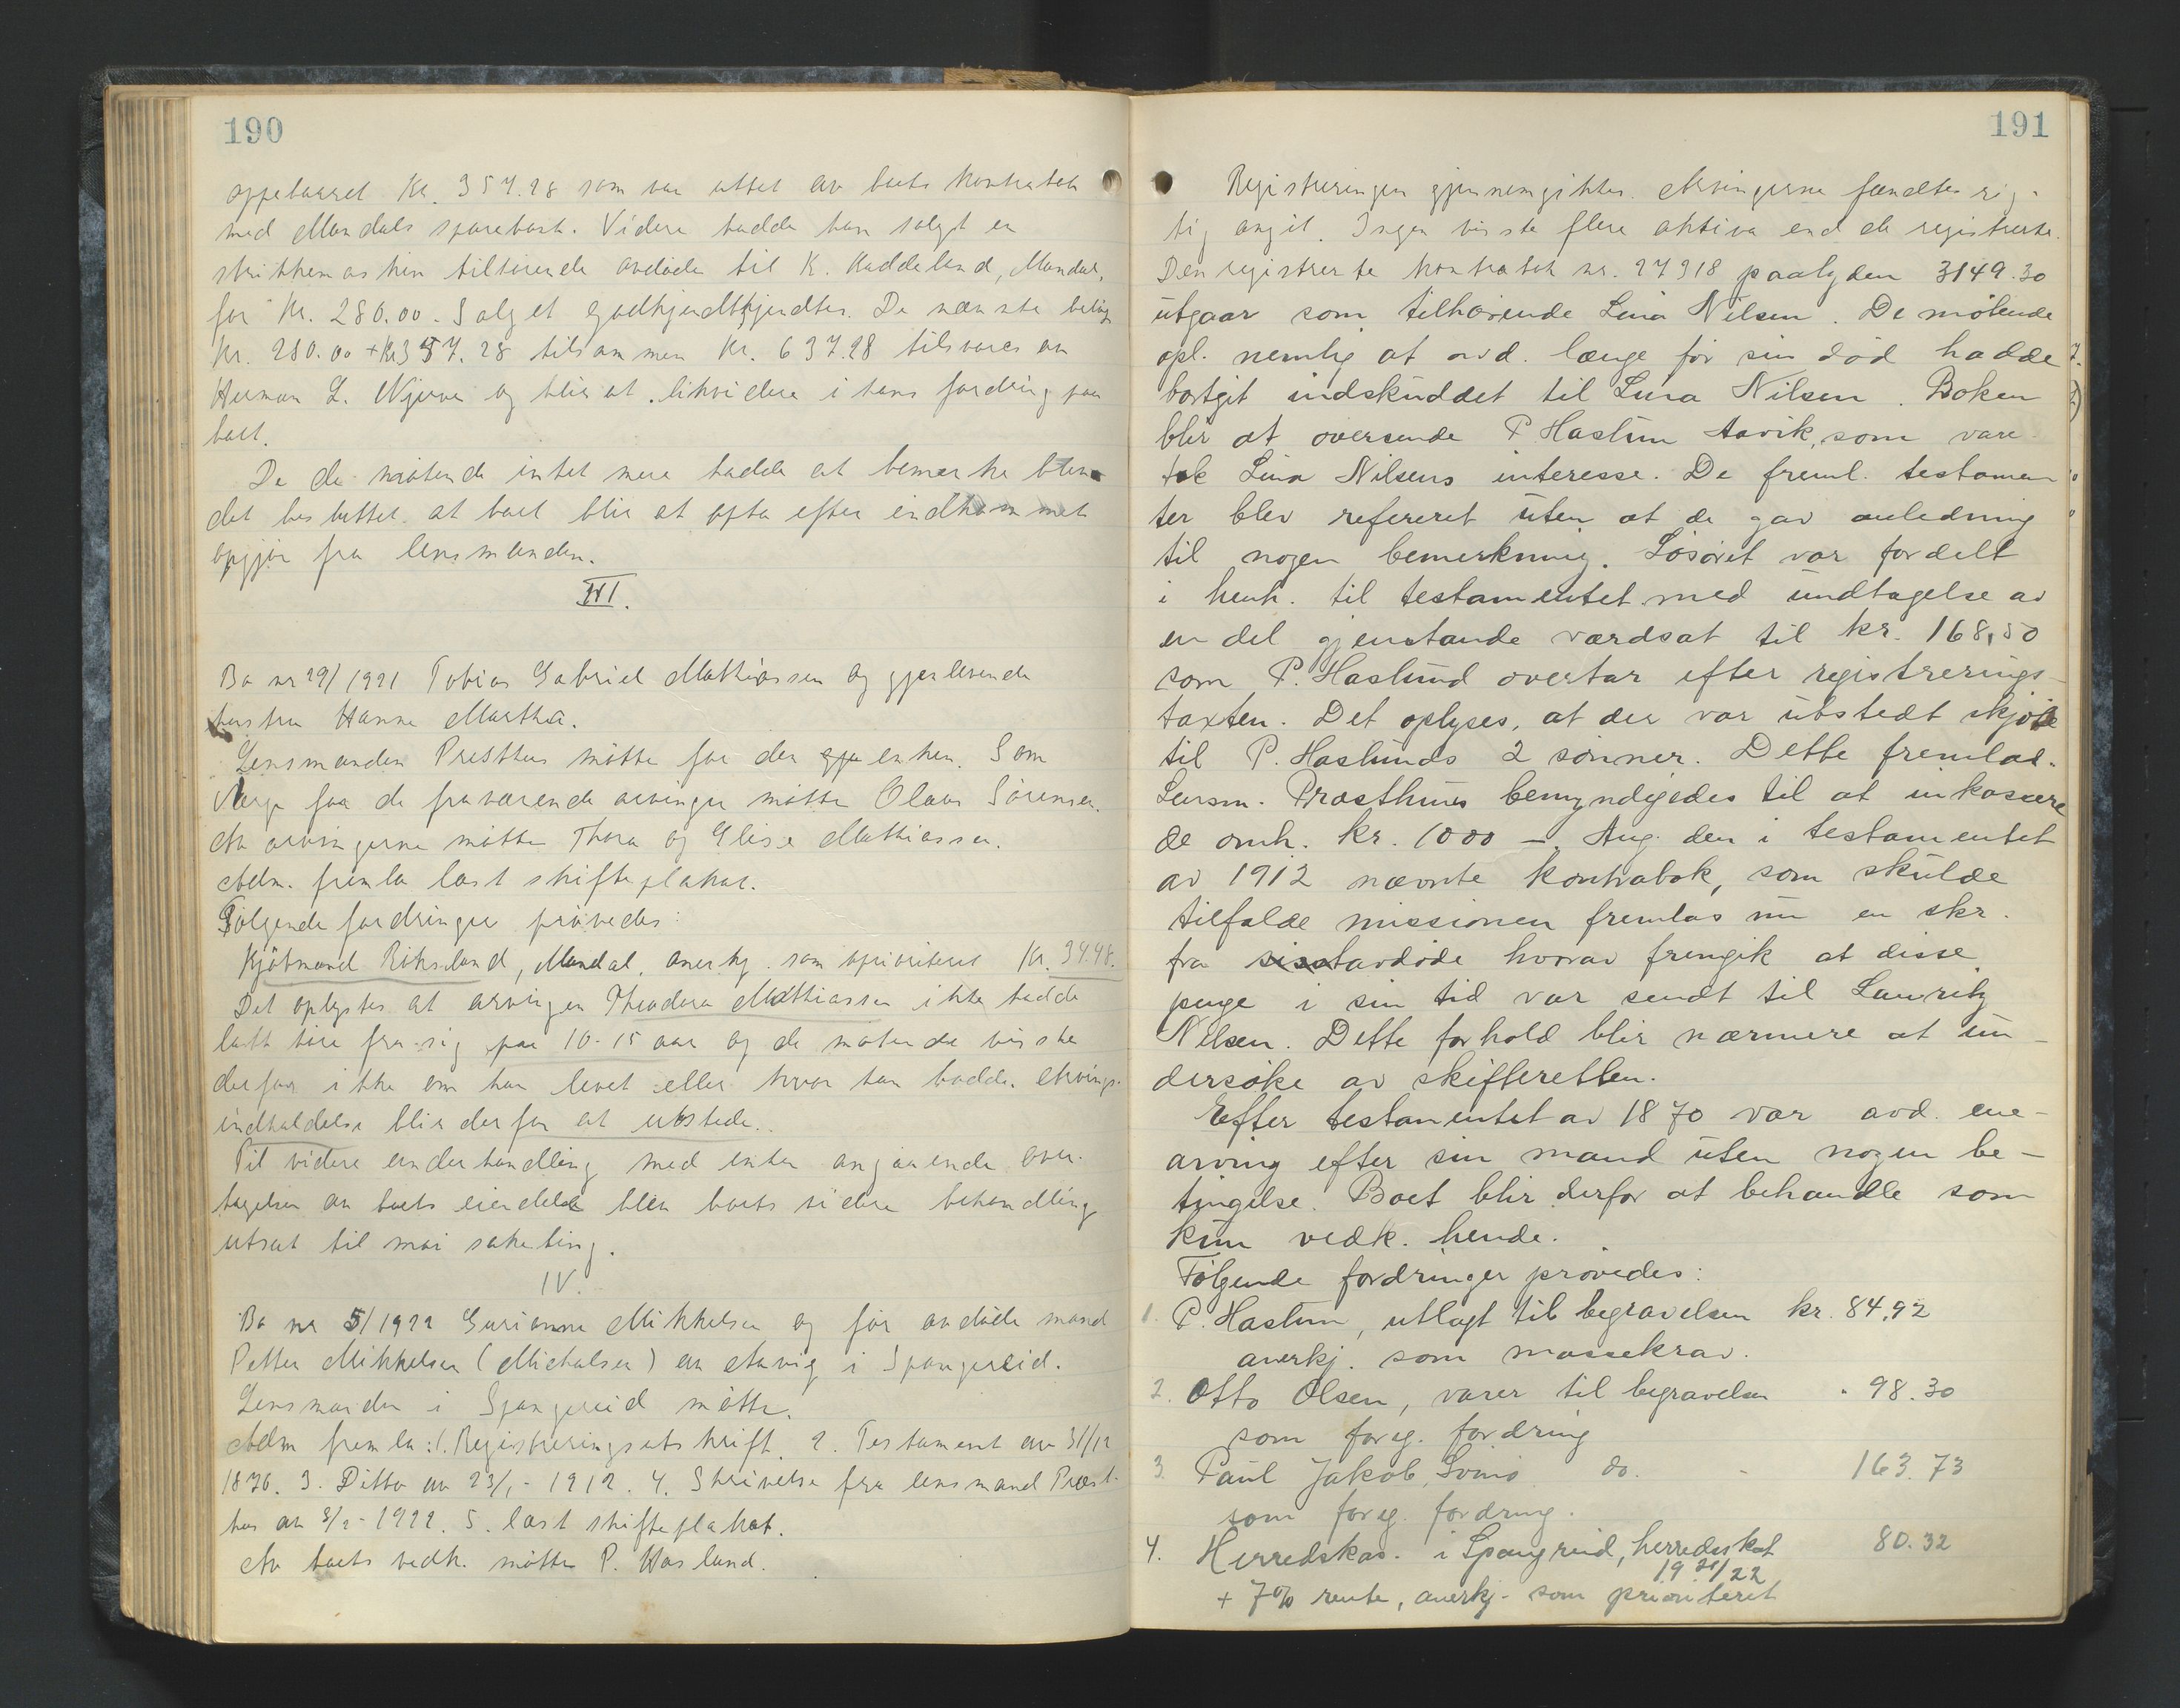 190
oppebaaret Kr. 357.28 som var uttat av boets kontrabok
med Mandals sparebank. Videre hadde han solgt en
strikkemaskin tilhörende avdöde til K. Haddeland, Mandal,
for Kr. 280.00. Salget godkjendtkjendtes. De nævnte belöp
Kr. 280.00 + Kr 357.28 tilsammen Kr. 637.28 tilsvares av
Herman L. Njerve og blir at likvidere i hans fordring paa
boet.
Da de mötende intet mere hadde at bemerke blev
det besluttet at boet blir at opta efter indkommet
opgjör fra lensmanden.
III.
Bo nr 29/1921 Tobias Gabriel Mathiassen og gjenlevende
hustru Hanna Martha.
Lensmanden Presthus mötte for den gje enken. Som
Verge for de fraværende arvinger mötte Olaus Sörensen.
Av arvingerne mötte Thora og Elise Mathiassen.
Adm. fremla læst skifteplakat.
Fölgende fordringer prövedes:
Kjöbmand Riksland, Mandal, anerkj. som uprioriteret Kr. 34.48.
Det oplystes at arvingen Theodora Mathiassen ikke hadde
latt höre fra sig paa 10-15 aar og de mötende visste
derfor ikke om han levet eller hvor han bodde. Arvings-
indkaldelse blir derfor at utstede.
Til videre underhandling med enken angaaende over-
tagelsen av boets eiendele blev boets videre behandling
utsat til mai saketing.
IV.
Bo nr 5/1922 Gurianna Mikkelsen og før avdöde mand
Petter Mikkelsen (Michalsen) av Aavig i Spangereid.
Lensmanden i Spangereid mötte.
Adm fremla: 1. Registreringsutskrift. 2. Testament av 31/12
1870. 3. Ditto av 23/1-1912. 4. Skrivelse fra lensmand Præst-
hus av 8/2-1922. 5. læst skifteplakat.
Av boets vedk. mötte P. Haslund.
191
Registreringen gjennemgikkes. Arvingerne fandtes rig-
tig angit. Ingen visste flere aktiva end de registrerte.
Den registrerte kontrabok nr. 27918 paalyden 3149.30
utgaar som tilhörende Lina Nilsen. De mötende
opl. nemlig at avd. længe för sin död hadde
bortgit indskuddet til Lina Nilsen. Boken
blir at oversende P. Haslun Aavik, som vare-
tok Lina Nilsens interesse. De freml. testamen-
ter blev refereret uten at de gav anledning
til nogen bemerkning. Lösöret var fordelt
i henh. til testamentet med undtagelse av
en del gjenstande værdsat til kr. 168,50
som P. Haslund overtar efter registrerings-
taxten. Det oplyses, at der var utstedt skjöte
til P. Haslunds 2 sönner. Dette fremlaa.
Lensm. Præsthus bemyndigedes til at inkassere
de omh. kr. 1000 –. Ang. den i testamentet
av 1912 nævnte kontrabok, som skulde
tilfalde missionen fremlaa nu en skr.
fra sisstavdöde hvorav fremgik at disse
penge i sin tid var sendt til Lauritz
Nilsen. Dette forhold blir nærmere at un-
dersöke av skifteretten.
Efter testamentet av 1870 var avd. ene-
arving efter sin mand uten nogen be-
tingelse. Boet blir derfor at behandle som
kun vedk. hende.
Fölgende fordringer prövedes:
1. P. Haslun, utlagt til begravelsen kr. 84,92
anerkj. som massekrav.
2. Otto Olsen, varer til begravelsen " 98.30
som foreg. fordring
3. Paul Jakob do. - 163.73
som foreg. fordring.
4. Herredskas. i Spangereid, herredsskat 80.32
19 21/22
+ 7% rente, anerkj. som prioriteret